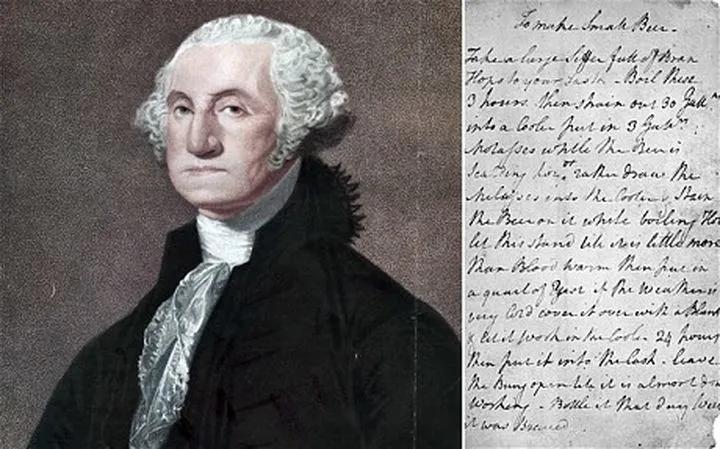 To make Small Beer.
Take a large Siffer full of Bran
Hops to your Taste - Boil these
3 hours. then strain out 30 Gallns
into a Cooler put in 3 Galns
Molasses while the Beer is
Scalding hot or rather draw the
Molasses into the Cooler & Strain
the Beer on it while boiling Hot
let this stand till it is little more
than Blood warm then put in
a quart of Yest if the Weather is
very Cold cover it over with a Blank
& let it work in the Cooler 24 hours
then put it into the Cask - leave
the Bung open till it is almost don
working - Bottle it that day Week
it was Brewed